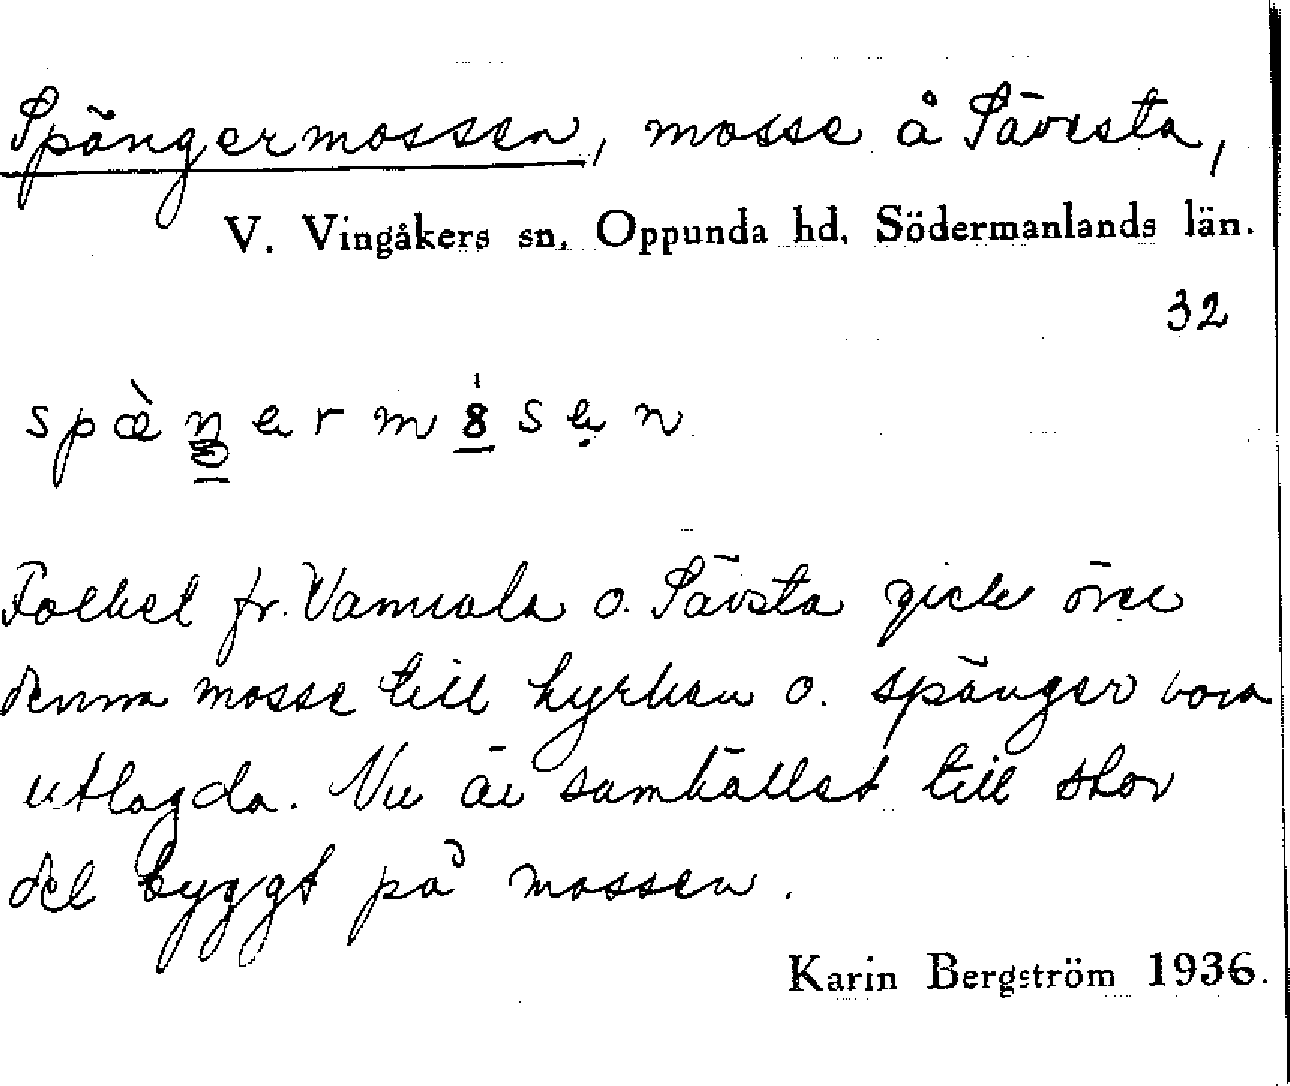 Spängermossen, mosse å Sävsta,
V. Vingåkers sn, Oppunda hd, Södermanlands län.
32
Folket fr. Vannala o. Sävsta gick över
denna mosse till kyrkan o. spänger voro
utlagda. Nu är samhället till stor
del byggt på mossen.
Karin Bergström 1936.